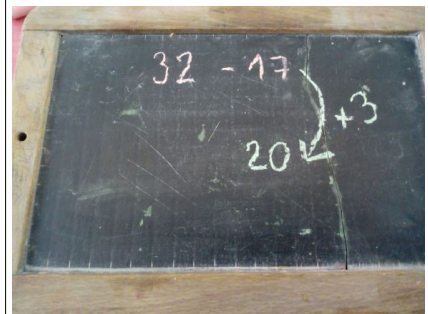 32 - 17
+3
20